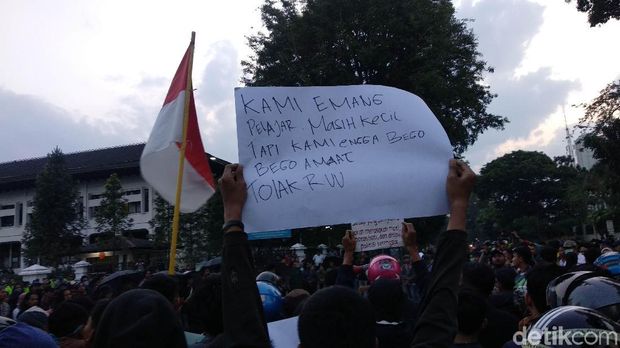 KAMI EMANG
PELAJAR. MASIH KECIL
TAPI KAMI ENGGA BEGO
BEGO AMAAT
TOLAK RUU
detikcom